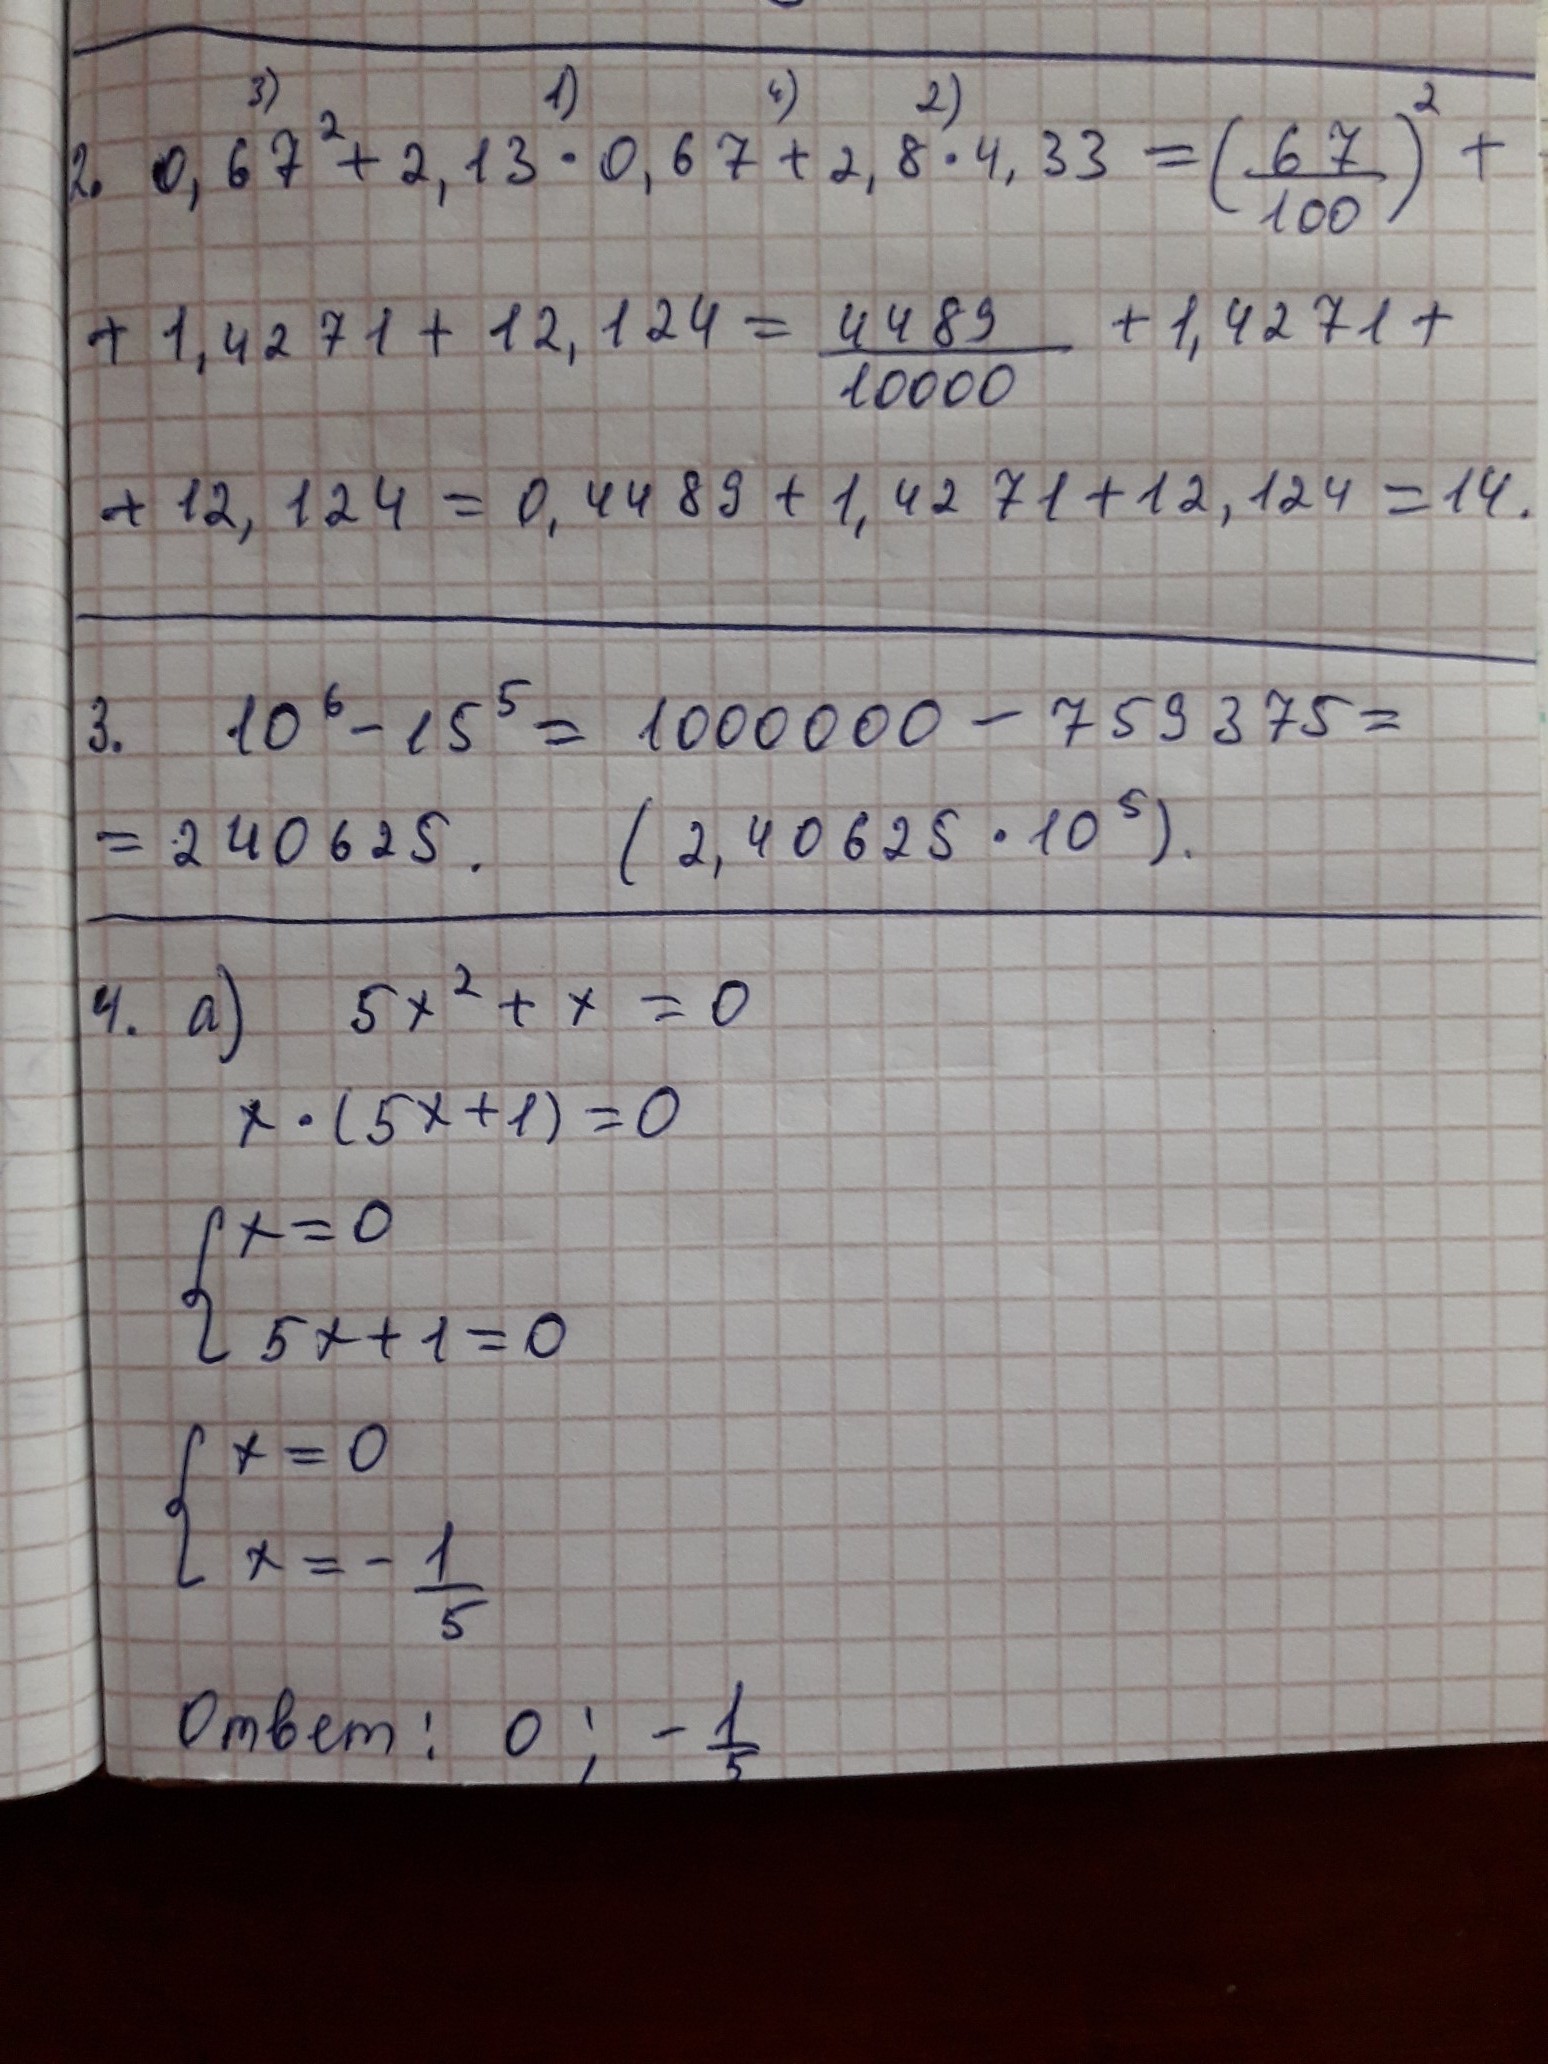 3) 1) 4) 2)
2. 0,67² + 2,13 · 0,67 + 2,8 · 4,33 = (67/100)² +
+ 1,4271 + 12,124 = 4489/10000 + 1,4271 +
+ 12,124 = 0,4489 + 1,4271 + 12,124 = 14.
3. 10⁶ - 15⁵ = 1000000 - 759375 =
= 240625. (2,40625 · 10⁵).
4. а) 5x² + x = 0
x · (5x+1) = 0
{ x = 0
5x + 1 = 0
{ x = 0
x = - 1/5
Ответ: 0 ; - 1/5